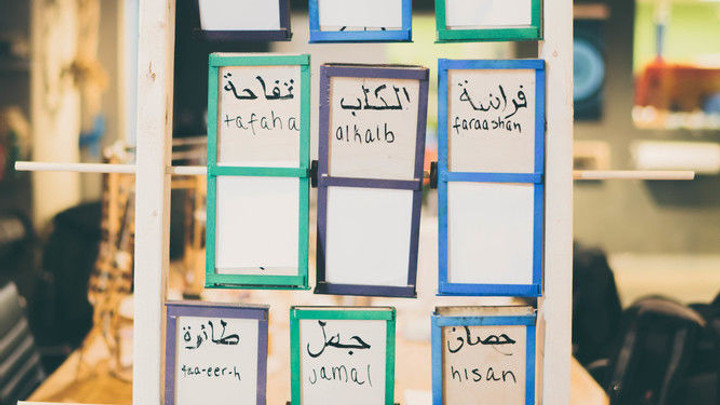 تفاحة
tafaha
الكتاب
alkalb
فراشة
faraashah
طائرة
taa-eer-h
جمل
jamal
حصان
hisan